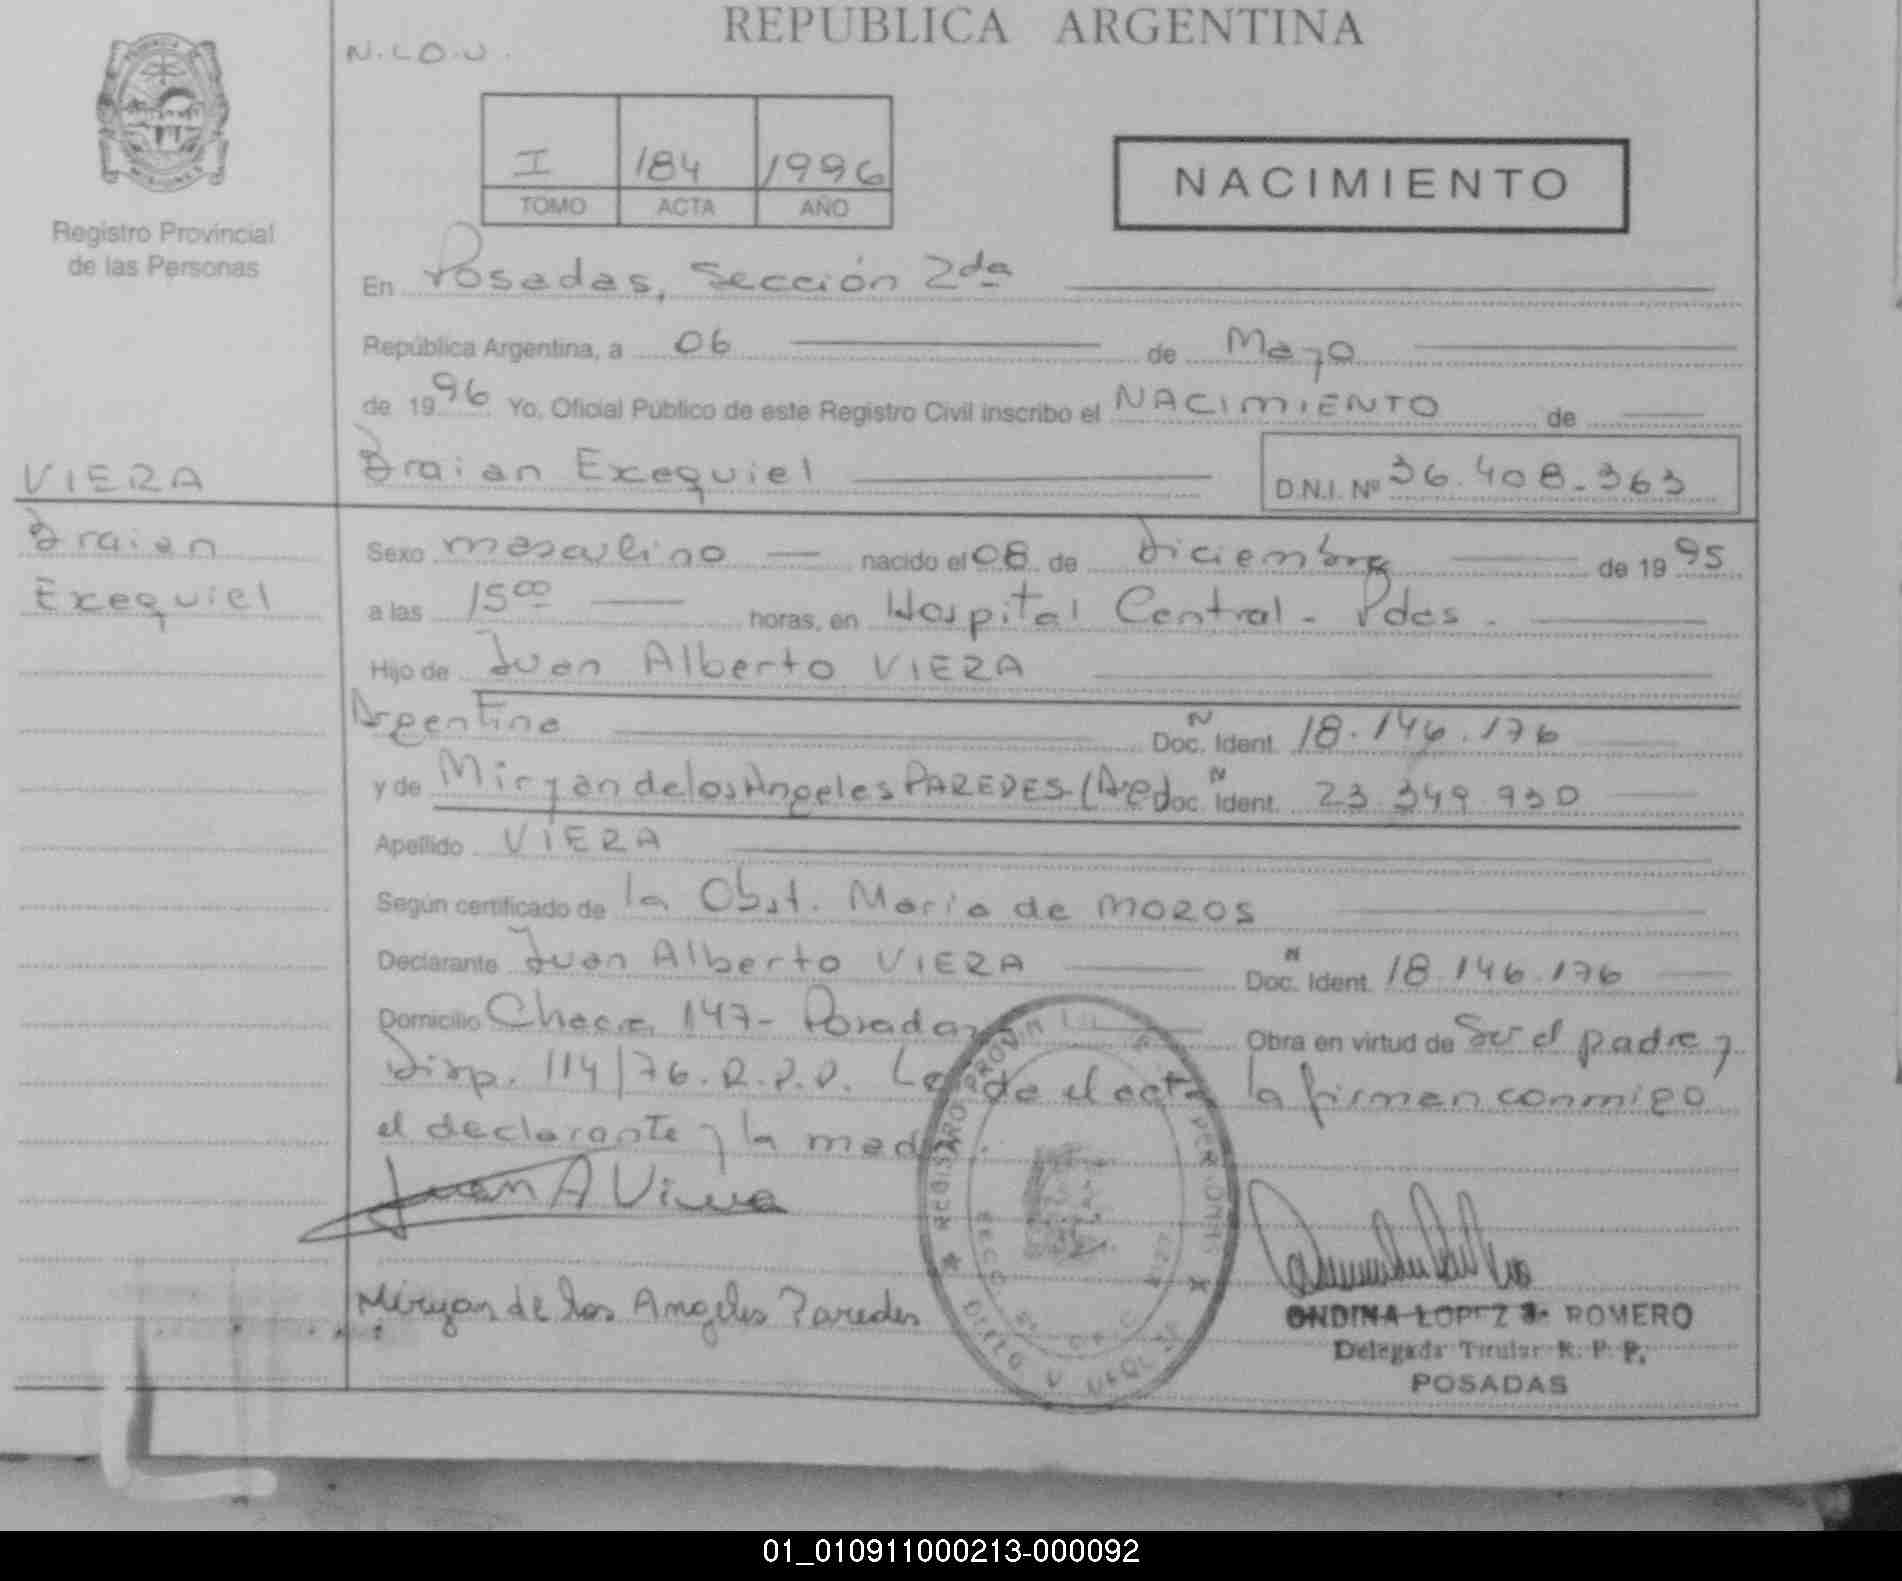 REPUBLICA ARGENTINA
N.LO.U.
I 184 1996
TOMO ACTA AÑO
NACIMIENTO
Registro Provincial
de las Personas
En Posadas, Sección 2da
República Argentina, a 06 de Mayo
de 1996 Yo, Oficial Público de este Registro Civil inscribo el NACIMIENTO de
VIERA
Braian Exequiel
Braian Exequiel D.N.I. Nº 36.408.363
Sexo masculino nacido el 08 de diciembre de 1995
a las 15 00 horas, en Hospital Central - Pdas.
Hijo de Juan Alberto VIERA
Argentino Doc. Ident. N 18.146.176
y de Miryan de los Angeles PAREDES (Arg) Doc. Ident. N 23.349.930
Apellido VIERA
Según certificado de la Obst. Maria de MOROS
Declarante Juan Alberto VIERA Doc. Ident. N 18.146.176
Domicilio Chaca 147 - Posadas Obra en virtud de Ser el padre y
Disp. 114/76.R.P.P. Leída el acta la firman conmigo
el declarante y la madre.
Juan A Viera
Miryan de los Angeles Paredes
REGISTRO PROVINCIAL PERSONAS
ONDINA LOPEZ ROMERO
Delegada Titular R. P. P.
POSADAS
01_010911000213-000092